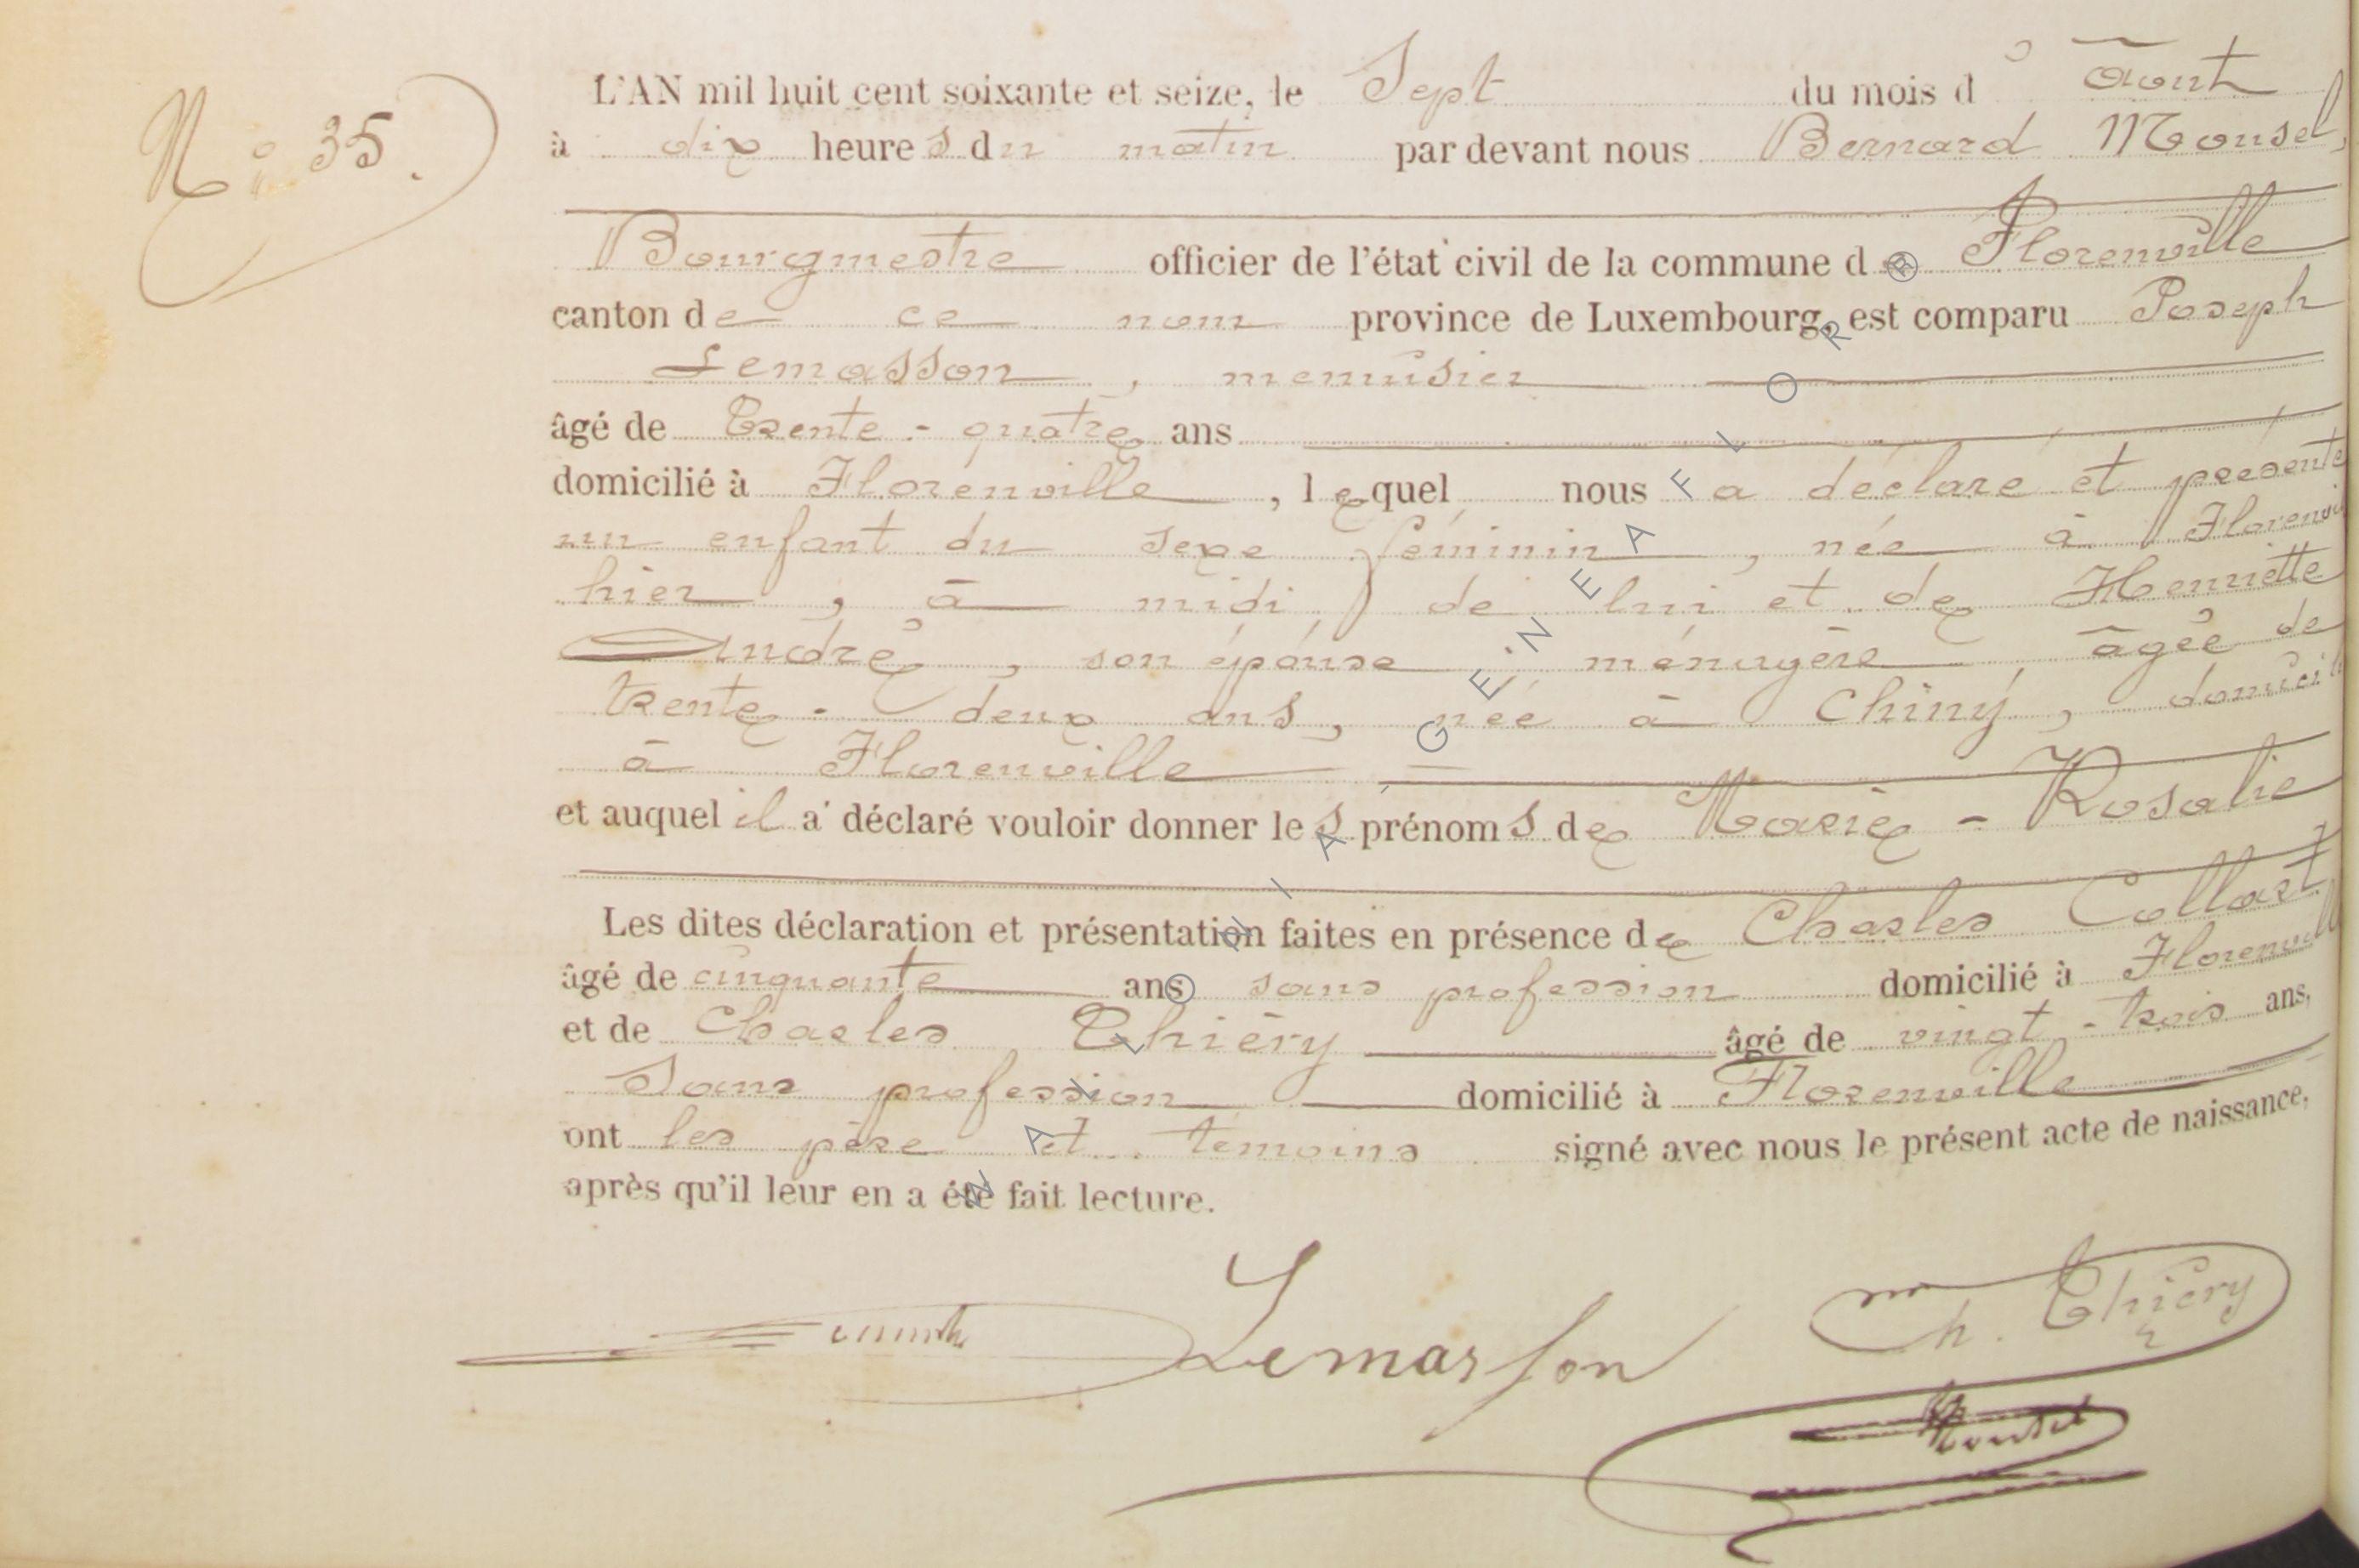 N° 35.
L'AN mil huit cent soixante et seize, le Sept du mois d' août
à dix heures du matin par devant nous Bernard Mousel,
Bourgmestre officier de l'état civil de la commune de Florenville
canton de ce nom province de Luxembourg, est comparu Joseph
Lemasson, menuisier
âgé de trente-quatre ans
domicilié à Florenville, lequel nous a déclaré et présenté
un enfant du sexe féminin, née à Florenvi
hier, à midi, de lui et de Henriette
André, son épouse, ménagère, âgée de
trente-deux ans, née à Chiny, domicil
à Florenville
et auquel il a déclaré vouloir donner les prénoms de Marie-Rosalie
Les dites déclaration et présentation faites en présence de Charles Collart
âgé de cinquante ans sans profession domicilié à Florenville
et de Charles Thiéry âgé de vingt-trois ans,
Sans profession domicilié à Florenville
ont les père et témoins signé avec nous le présent acte de naissance,
après qu'il leur en a été fait lecture.
Lemasson
Ch. Thiéry
Mousel